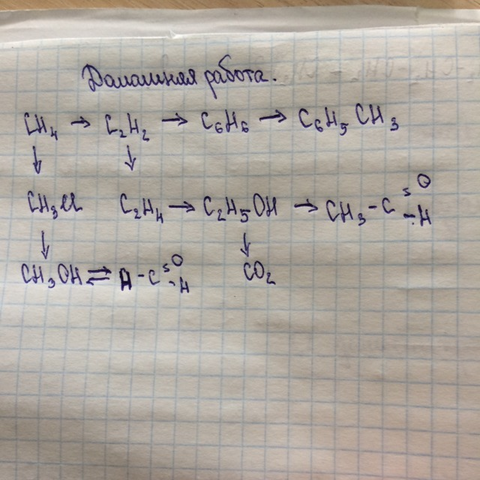 Домашняя работа.
CH₄ → C₂H₂ → C₆H₆ → C₆H₅CH₃
↓ ↓
CH₃Cl C₂H₄ → C₂H₅OH → CH₃-C=O-H
↓ ↓
CH₃OH ⇌ H-C=O-H CO₂